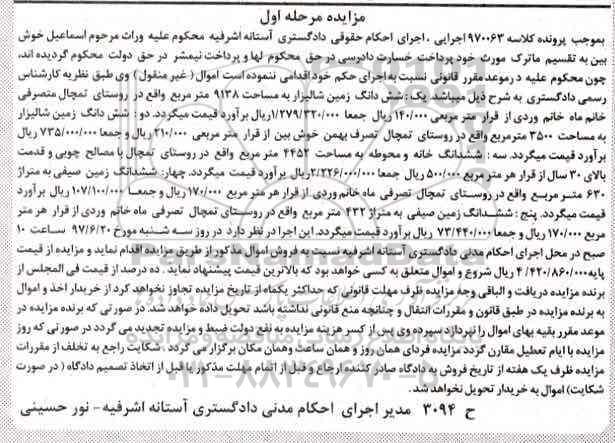 مزایده مرحله اول
بموجب پرونده کلاسه ۹۷۰۰۶۳ اجرایی ، اجرای احکام حقوقی دادگستری آستانه اشرفیه محکوم علیه وراث مرحوم اسماعیل خوش
بین به تقسیم ماترک مورث خود پرداخت خسارت دادرسی در حق محکوم لها و پرداخت نیمعشر در حق دولت محکوم گردیده اند،
چون محکوم علیه در موعد مقرر قانونی نسبت به اجرای حکم خود اقدامی ننموده است اموال ( غیر منقول ) وی طبق نظریه کارشناس
رسمی دادگستری به شرح ذیل میباشد. یک : شش دانگ زمین شالیزار به مساحت ۹۱۳۸ متر مربع واقع در روستای تمچال متصرفی
خانم ماه خانم وردی از قرار متر مربعی ۱۴۰/۰۰۰ریال جمعا ۱/۲۷۹/۳۲۰/۰۰۰ریال برآورد قیمت میگردد. دو : شش دانگ زمین شالیزار
به مساحت ۳۵۰۰ مترمربع واقع در روستای تمچال تصرف بهمن خوش بین از قرار متر مربعی ۲۱۰/۰۰۰ ریال و جمعا ۷۳۵/۰۰۰/۰۰۰ ریال
برآورد قیمت میگردد. سه : ششدانگ خانه و محوطه به مساحت ۴۴۵۲ متر مربع واقع در روستای تمچال با مصالح چوبی و قدمت
بالای ۳۰ سال از قرار هر متر مربع ۵۰۰/۰۰۰ ریال جمعا ۲/۲۲۶/۰۰۰/۰۰۰ریال برآورد قیمت میگردد. چهار: ششدانگ زمین صیفی به متراژ
۶۳۰ متر مربع واقع در روستای تمچال تصرفی ماه خانم وردی از قرار هر متر مربع ۱۷۰/۰۰۰ ریال و جمعا ۱۰۷/۱۰۰/۰۰۰ ریال برآورد
قیمت میگردد. پنج : ششدانگ زمین صیفی به متراژ ۴۳۲ متر مربع واقع در روستای تمچال تصرفی ماه خانم وردی از قرار هر متر
مربع ۱۷۰/۰۰۰ ریال و جمعا ۷۳/۴۴۰/۰۰۰ ریال برآورد قیمت میگردد. این اجرا در نظر دارد در روز سه شنبه مورخ ۹۷/۶/۲۰ ساعت ۱۰
صبح در محل اجرای احکام مدنی دادگستری آستانه اشرفیه نسبت به فروش اموال مذکور از طریق مزایده اقدام نماید و مزایده از قیمت
پایه۴/۴۲۰/۸۶۰/۰۰۰ ریال شروع و اموال متعلق به کسی خواهد بود که بالاترین قیمت پیشنهاد نماید . ده درصد از قیمت فی المجلس از
برنده مزایده دریافت و الباقی وجه مزایده ظرف مهلت قانونی که حداکثر یکماه از تاریخ مزایده تجاوز نخواهد کرد از خریدار اخذ و اموال
به برنده مزایده در طبق قانون و مقررات انتقال و چنانچه منع قانونی نداشته باشد تحویل داده خواهد شد. در صورتی که برنده مزایده در
موعد مقرر بقیه بهای اموال را نپردازد سپرده وی پس از کسر هزینه مزایده به نفع دولت ضبط و مزایده تجدید می گردد در صورتی که روز
مزایده با ایام تعطیل مقارن گردد مزایده فردای همان روز و همان ساعت وهمان مکان برگزار می گردد . شکایت راجع به تخلف از مقررات
مزایده ظرف یک هفته از تاریخ فروش به دادگاه صادر کننده ارجاع و قبل از اتمام مهلت مذکور یا قبل از اتخاذ تصمیم دادگاه ( در صورت
شکایت) اموال به خریدار تحویل نخواهد شد.
ح ۳۰۹۴ مدیر اجرای احکام مدنی دادگستری آستانه اشرفیه- نور حسینی